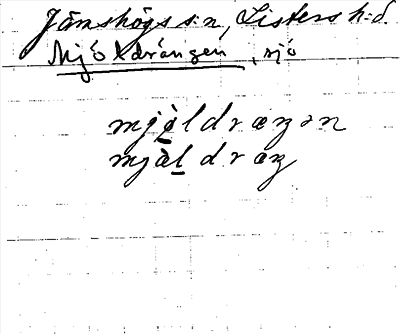 Jämshögs s:n, Listers h:d.
Mjöldrängen, sjö
mjò̱ldræŋən
mjàḻdræŋ